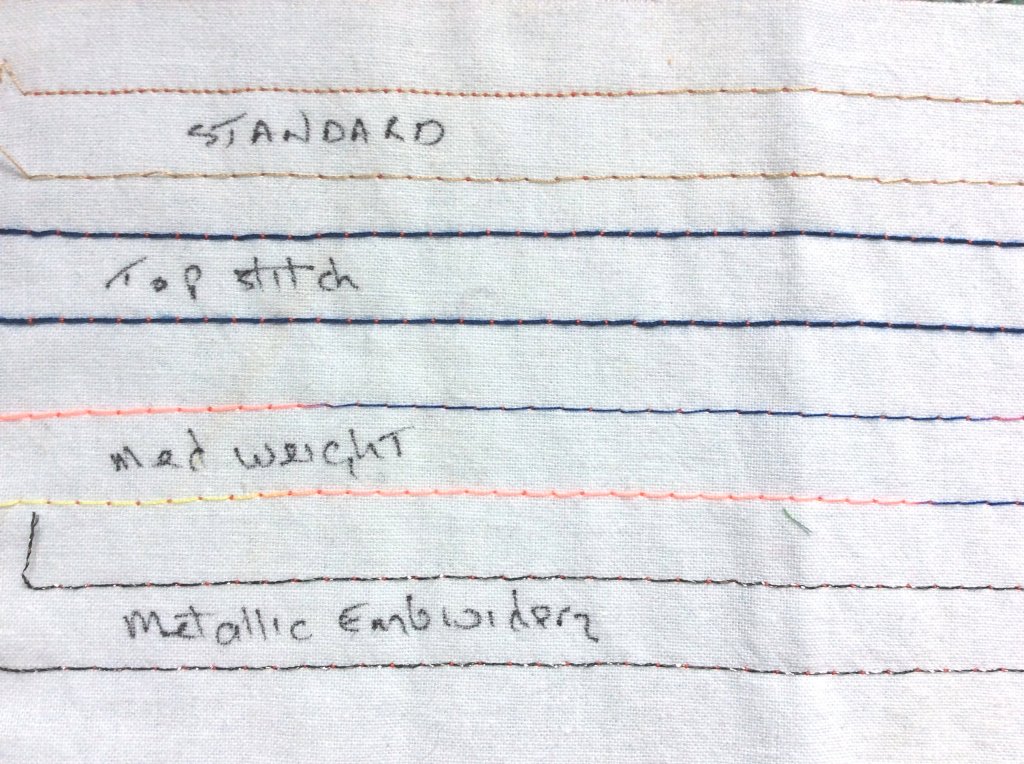 STANDARD
Top stitch
Med weight
Metallic Embroidery